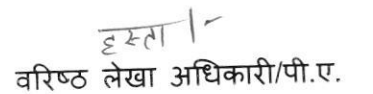 हस्ता।-
वरिष्ठ लेखा अधिकारी/पी.ए.